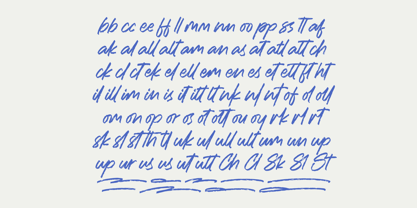 bb cc ee ff ll mm nn oo pp ss tt af
ak al all alt am an as at atl att ch
ck cl ct ek el ell em en es et ett fl ft ht
il ill im in is it itt lt nk nl nt of ol oll
om on op or os ot ott ou oy rk rl rt
sk sl st th tl uk ul ull ult um un up
up ur us us ut utt Ch Cl Sk Sl St